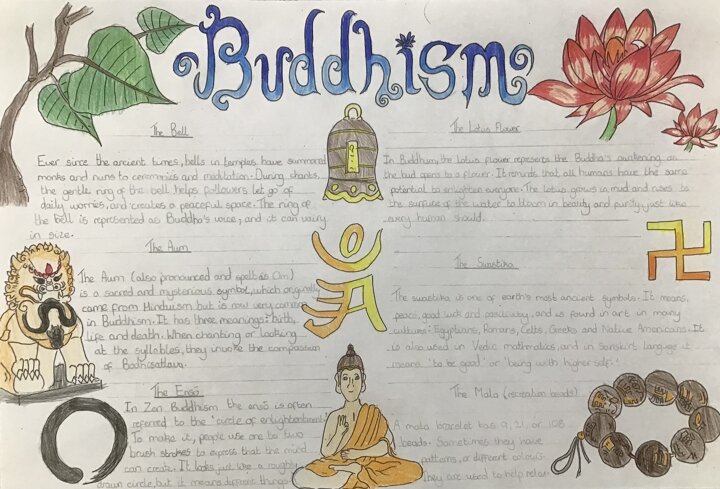 Buddhism
The Bell
Ever since the ancient times, bells in temples have summoned
monks and nuns to ceremonies and meditation. During chants,
the gentle ring of the bell helps followers let go of
daily worries, and creates a peaceful space. The ring of
the bell is represented as Buddha's voice, and it can vary
in size.
The Aum
The Aum (also pronounced and spelt as Om)
is a sacred and mysterious symbol, which originally
came from Hinduism but is now very common
in Buddhism. It has three meanings: birth,
life and death. When chanting or looking
at the syllables, they invoke the compassion
of Bodhisattava.
The Ensō
In Zen Buddhism the ensō is often
referred to the 'circle of enlightenment'.
To make it, people use one to two
brush strokes to express that the mind
can create. It looks just like a roughly
drawn circle, but it means different things
The Lotus Flower
In Buddhism, the lotus flower represents the Buddha's awakening, as
the bud opens to a flower. It reminds that all humans have the same
potential to enlighten everyone. The lotus grows in mud and rises to
the surface of the water to bloom in beauty and purity, just like
every human should.
The Swastika
The swastika is one of earth's most ancient symbols. It means
peace, good luck and positivity, and is found in art in many
cultures: Egyptians, Romans, Celts, Greeks and Native Americans. It
is also used in Vedic mathmatics, and in sanskirt language it
means 'to be good' or 'being with higher self'.
The Mala (recreation beads)
A mala bracelet has 9, 21, or 108
beads. Sometimes they have
patterns, or different colours.
They are used to help relax